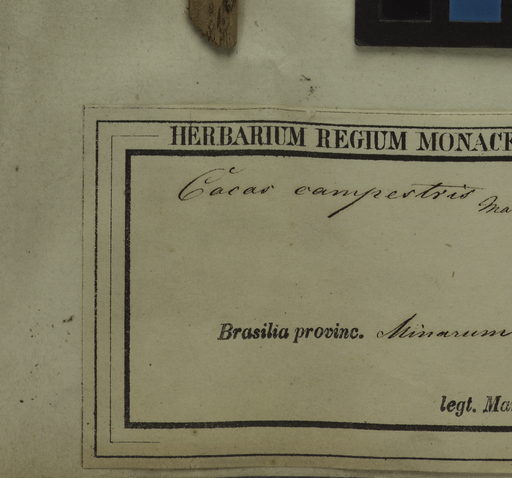 HERBARIUM REGIUM MONACE
Cocos campestris Ma
Brasilia provinc. Minarum
legt. Ma